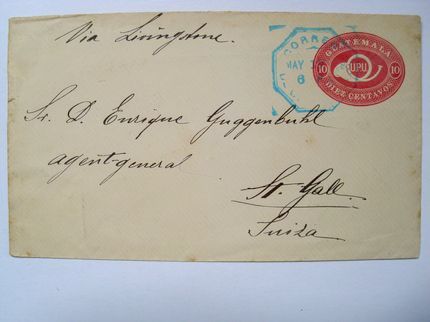 Via Livingstone.
CORREOS
MAY 1
6
GUATEMALA
10 U.P.U. 10
DIEZ CENTAVOS
Sr. D. Enrique Guggenbühl
agent-general
St. Gall.
Suiza